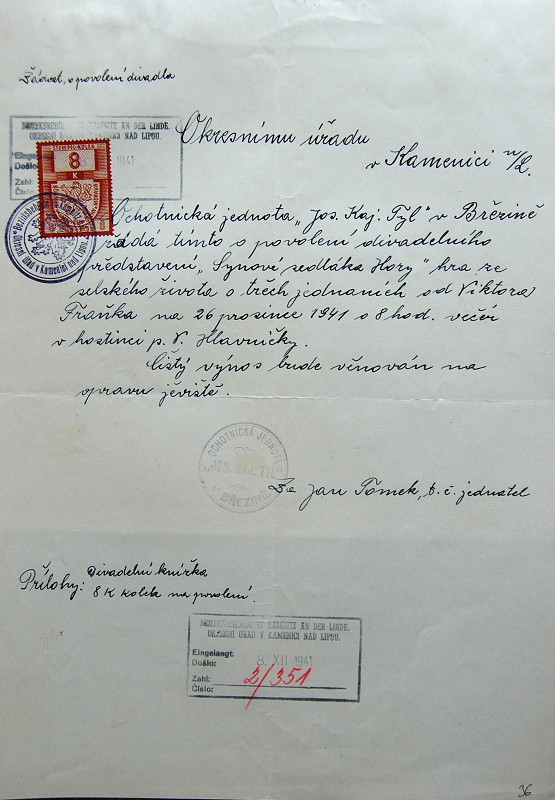 Žádost, o povolení divadla
BEZIRKSBEHÖRDE KAMNITZ AN DER LINDE.
OKRESNÍ ÚŘAD V KAMENICI NAD LIPOU.
Eingelangt:
Došlo:
1941
Zahl:
Číslo:
8
K
Okresnímu úřadu
v Kamenici n/L.
Okresní úřad v Kamenici nad Lipou
Ochotnická jednota „Jos. Kaj. Tyl" v Březině
žádá tímto o povolení divadelního
představení „Synové sedláka Hory" hra ze
selského života o třech jednáních od Viktora
Fraňka na 26 prosince 1941 o 8 hod. večer
v hostinci p. V. Hlavničky.
Čistý výnos bude věnován na
opravu jeviště.
OCHOTNICKÁ JEDNOTA
„JOS. KAJ. TYL"
v BŘEZINĚ
Za Jan Tomek, t. č. jednatel
Přílohy: Divadelní knížka
8 K kolek na povolení.
BEZIRKSBEHÖRDE KAMNITZ AN DER LINDE.
OKRESNÍ ÚŘAD V KAMENICI NAD LIPOU.
Eingelangt:
Došlo: 8. XII 1941
Zahl: 2/351
Číslo:
36